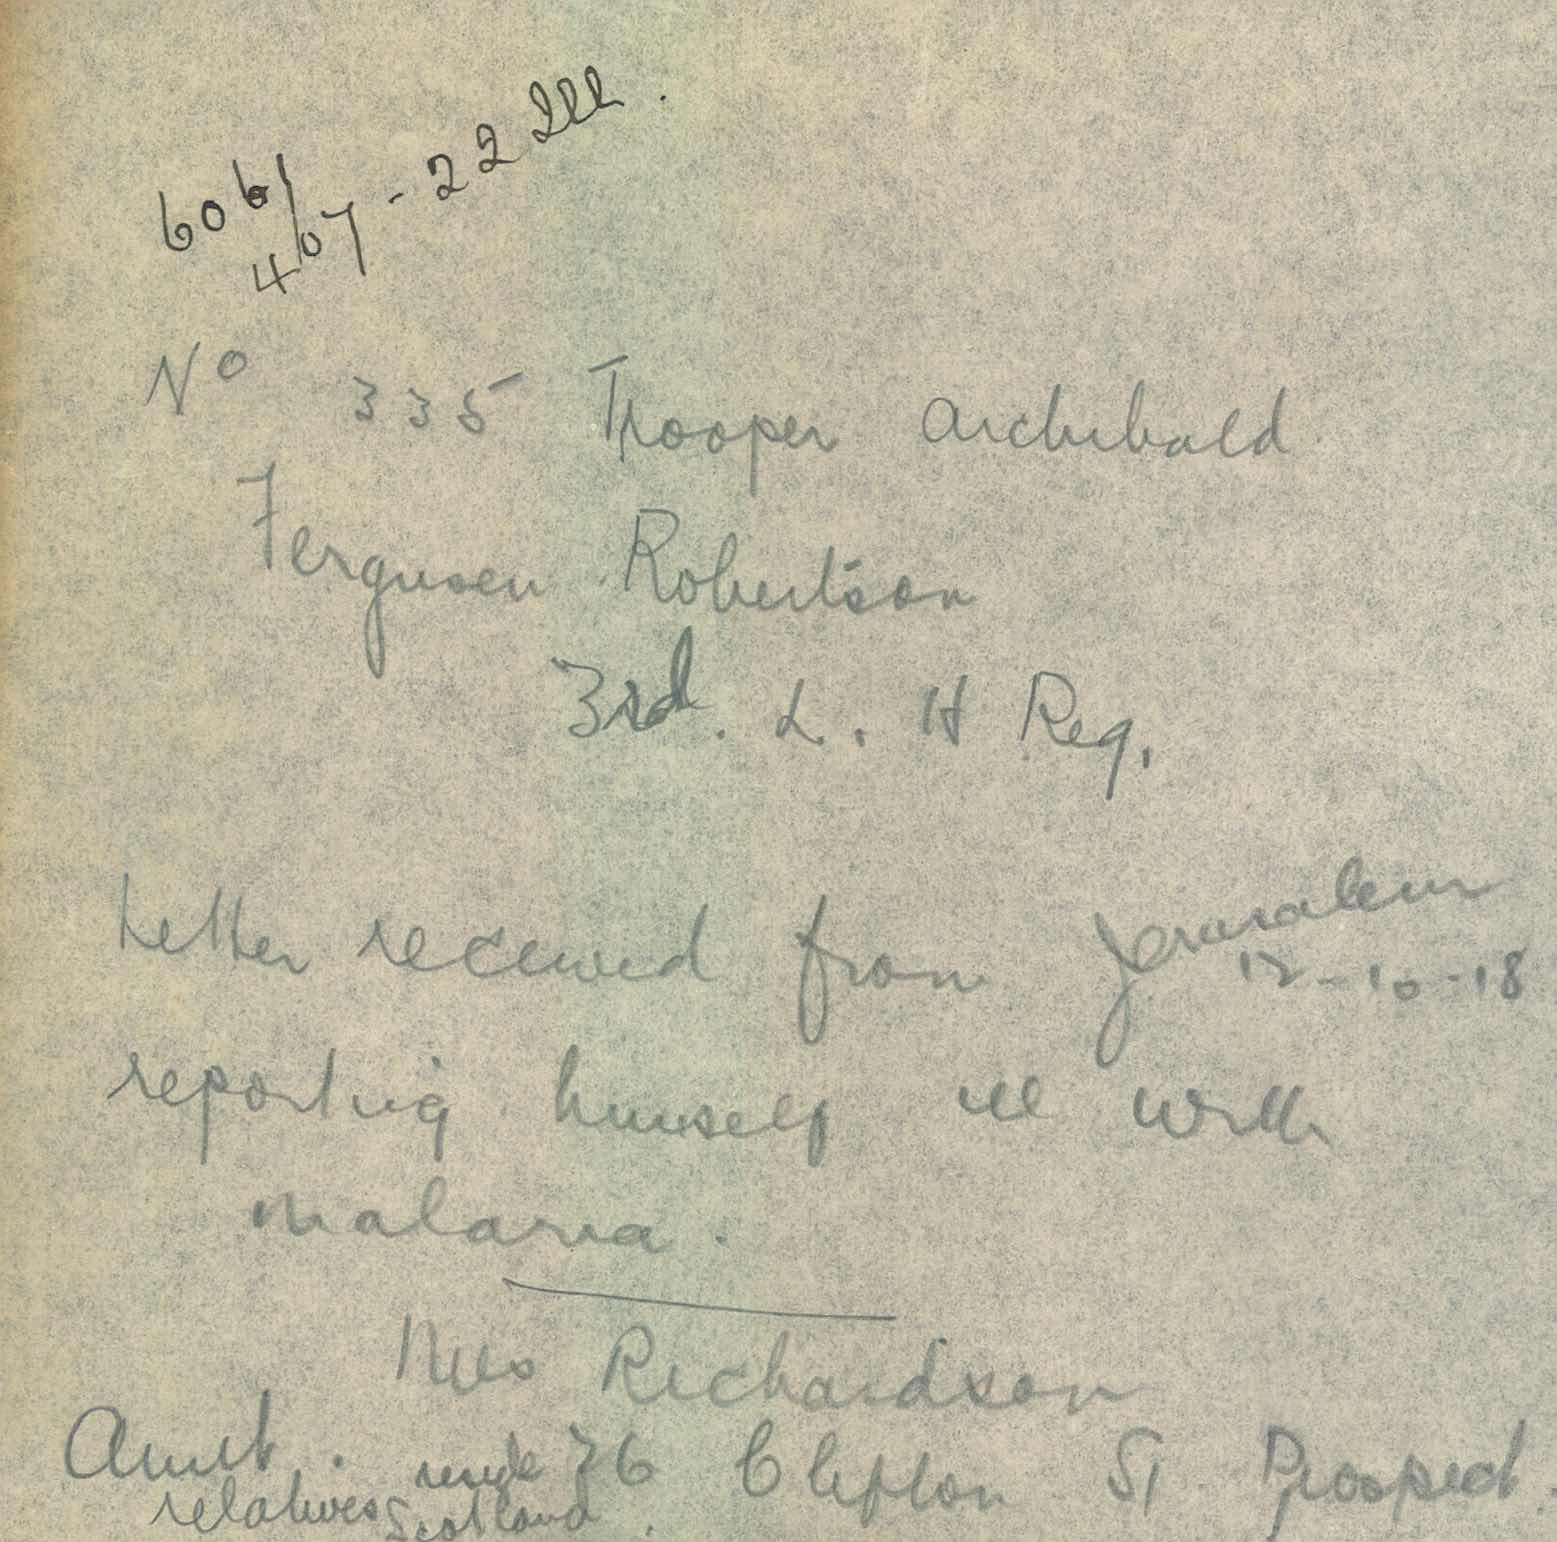 606/407 - 22
No 335 Trooper Archibald
Ferguson Robertson
3rd. L. H Reg.
Letter received from Jerusalem
12-10-18
reporting himself ill with
malaria.
Mrs Richardson
Aunt. 76 Clifton St Prospect.
relatives Scotland.